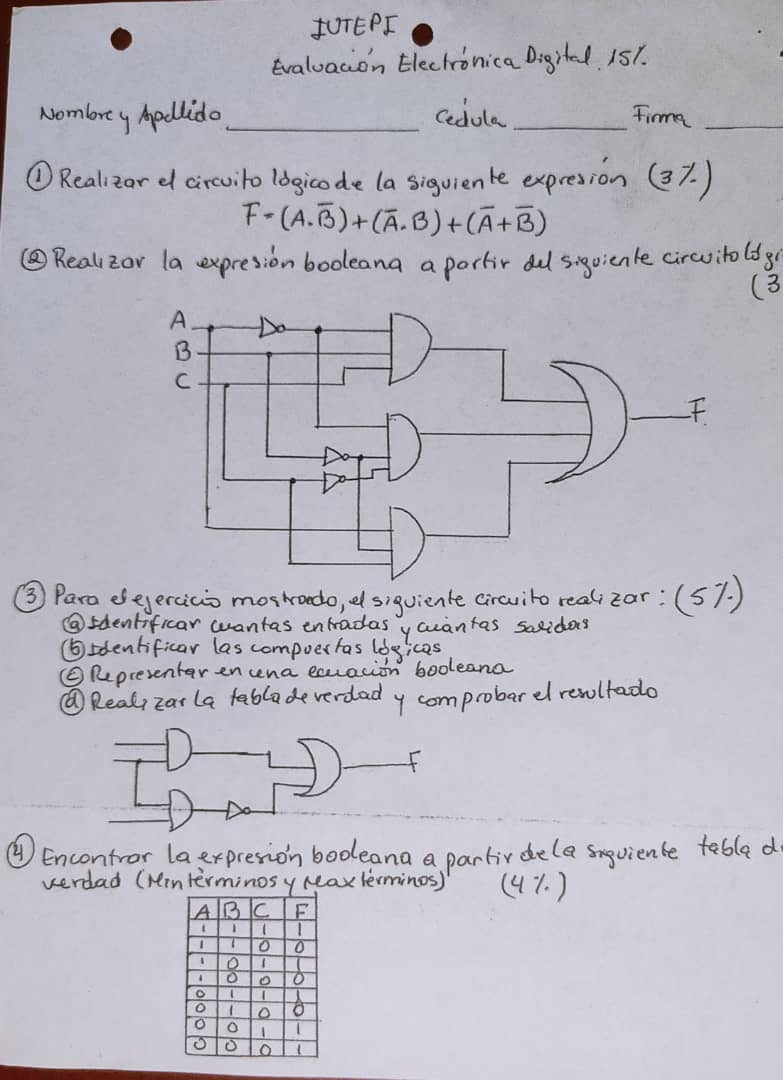 IUTEPI
Evaluación Electrónica Digital. 15%.
Nombre y Apellido ____________ Cédula ________ Firma ______
① Realizar el circuito lógico de la siguiente expresión (3%)
F=(A.B̅)+(A̅.B)+(A̅+B̅)
② Realizar la expresión booleana a partir del siguiente circuito lógi
(3
A
B
C
F
③ Para el ejercicio mostrado, el siguiente circuito realizar: (5%)
ⓐ Identificar cuantas entradas y cuántas salidas
ⓑ Identificar las compuertas lógicas
ⓒ Representar en una ecuación booleana
ⓓ Realizar la tabla de verdad y comprobar el resultado
F
④ Encontrar la expresión booleana a partir de la siguiente tabla d
verdad (Mintérminos y Maxtérminos) (4%)
A B C F
1 1 1 1
1 1 0 0
1 0 1 1
1 0 0 0
0 1 1 1
0 1 0 0
0 0 1 1
0 0 0 1